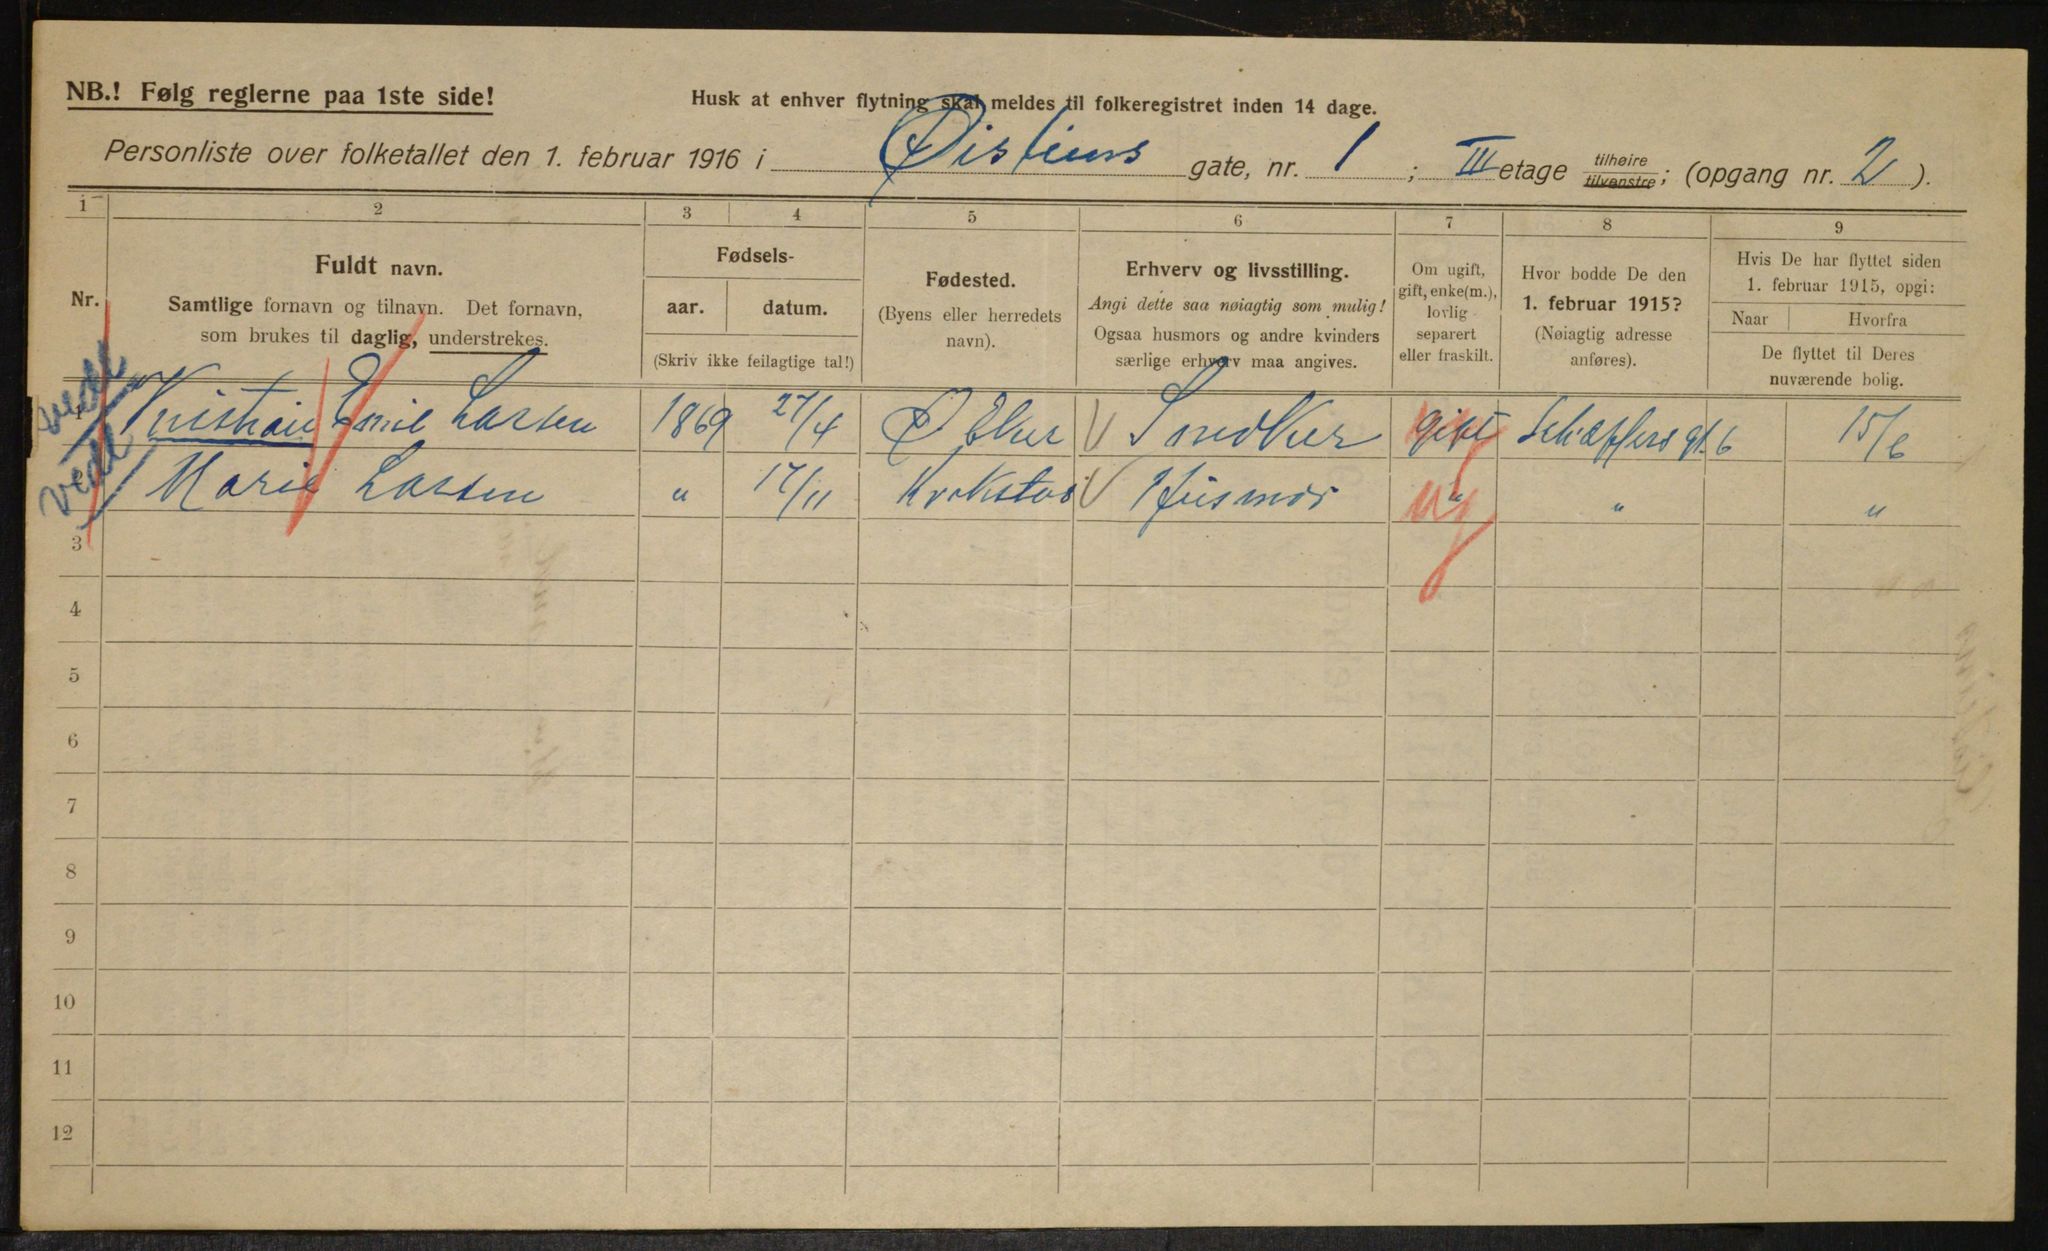 NB.! Følg reglerne paa 1ste side!
Husk at enhver flytning skal meldes til folkeregistret inden 14 dage.
Personliste over folketallet den 1. februar 1916 i Østeins gate, nr. 1 ; III etage tilhøire tilvenstre; (opgang nr. 2 ).
1 2 3 4 5 6 7 8 9
Nr.
Fuldt navn.
Samtlige fornavn og tilnavn. Det fornavn,
som brukes til daglig, understrekes.
Fødsels-
aar. datum.
(Skriv ikke feilagtige tal!)
Fødested.
(Byens eller herredets
navn).
Erhverv og livsstilling.
Angi dette saa nøiagtig som mulig!
Ogsaa husmors og andre kvinders
særlige erhverv maa angives.
Om ugift,
gift, enke(m.),
lovlig
separert
eller fraskilt.
Hvor bodde De den
1. februar 1915?
(Nøiagtig adresse
anføres).
Hvis De har flyttet siden
1. februar 1915, opgi:
Naar Hvorfra
De flyttet til Deres
nuværende bolig.
1 Kristian Emil Larsen 1869 27/4 Ø Eker Snedker gift Schæffers gt. 6 15/6
Marie Larsen " 17/11 Husmor " " "
3
4
5
6
7
8
9
10
11
12